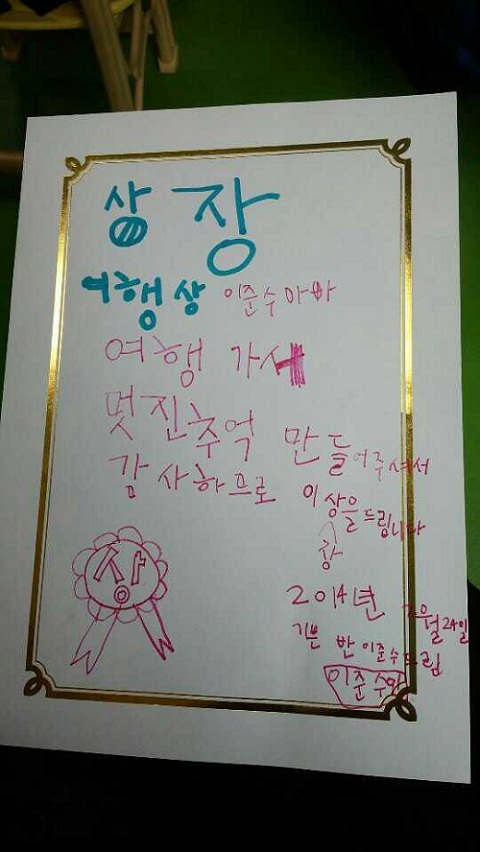 상장
여행상 이준수아빠
여행 가서
멋진추억 만들어주셔서
감사하므로 이상을드립니다
장
2014년 10월24일
기쁜반이준수드림
이준수
상